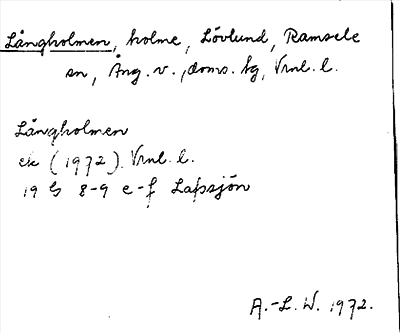 Långholmen, holme, Lövlund, Ramsele
sn, Ång. v., doms. hg, Vrnl. l.
Långholmen
ek (1972). Vrnl. l.
19 G 8-9 e-f Lafssjön
A.-L. W. 1972.